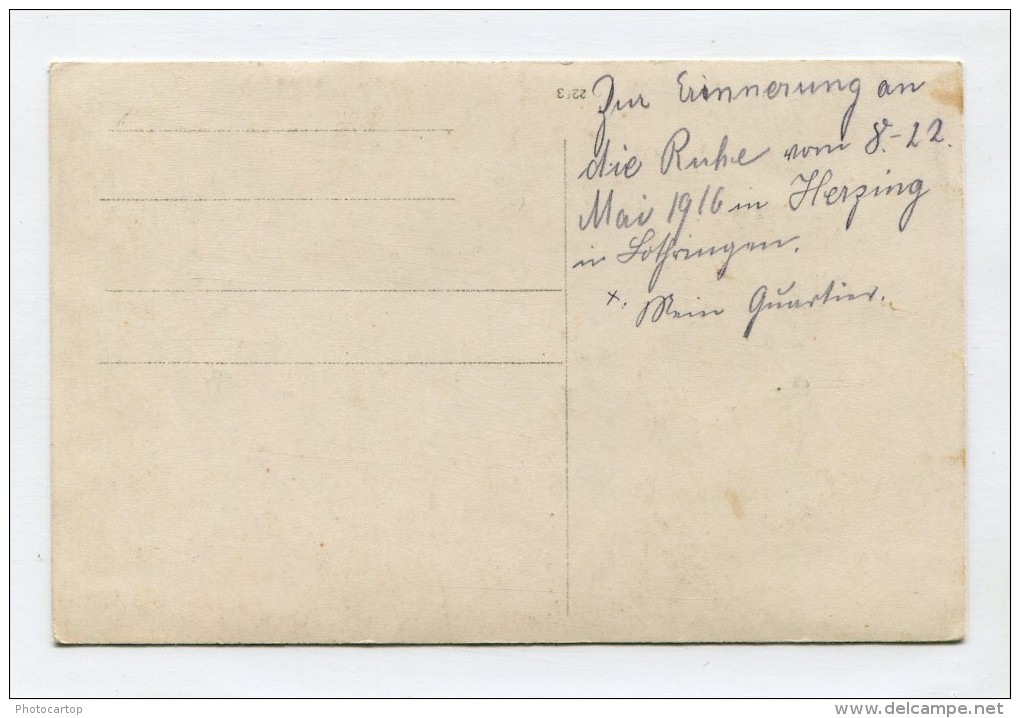 Zur Erinnerung an
die Ruhe vom 8.-22.
Mai 1916 in Herzing
in Lothringen.
x. Mein Quartier.
Photocartop
www.delcampe.net